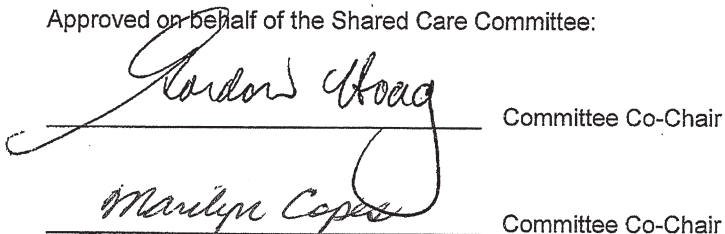 Approved on behalf of the Shared Care Committee:
Gordon Hoag
Committee Co-Chair
Marilyn Copes
Committee Co-Chair